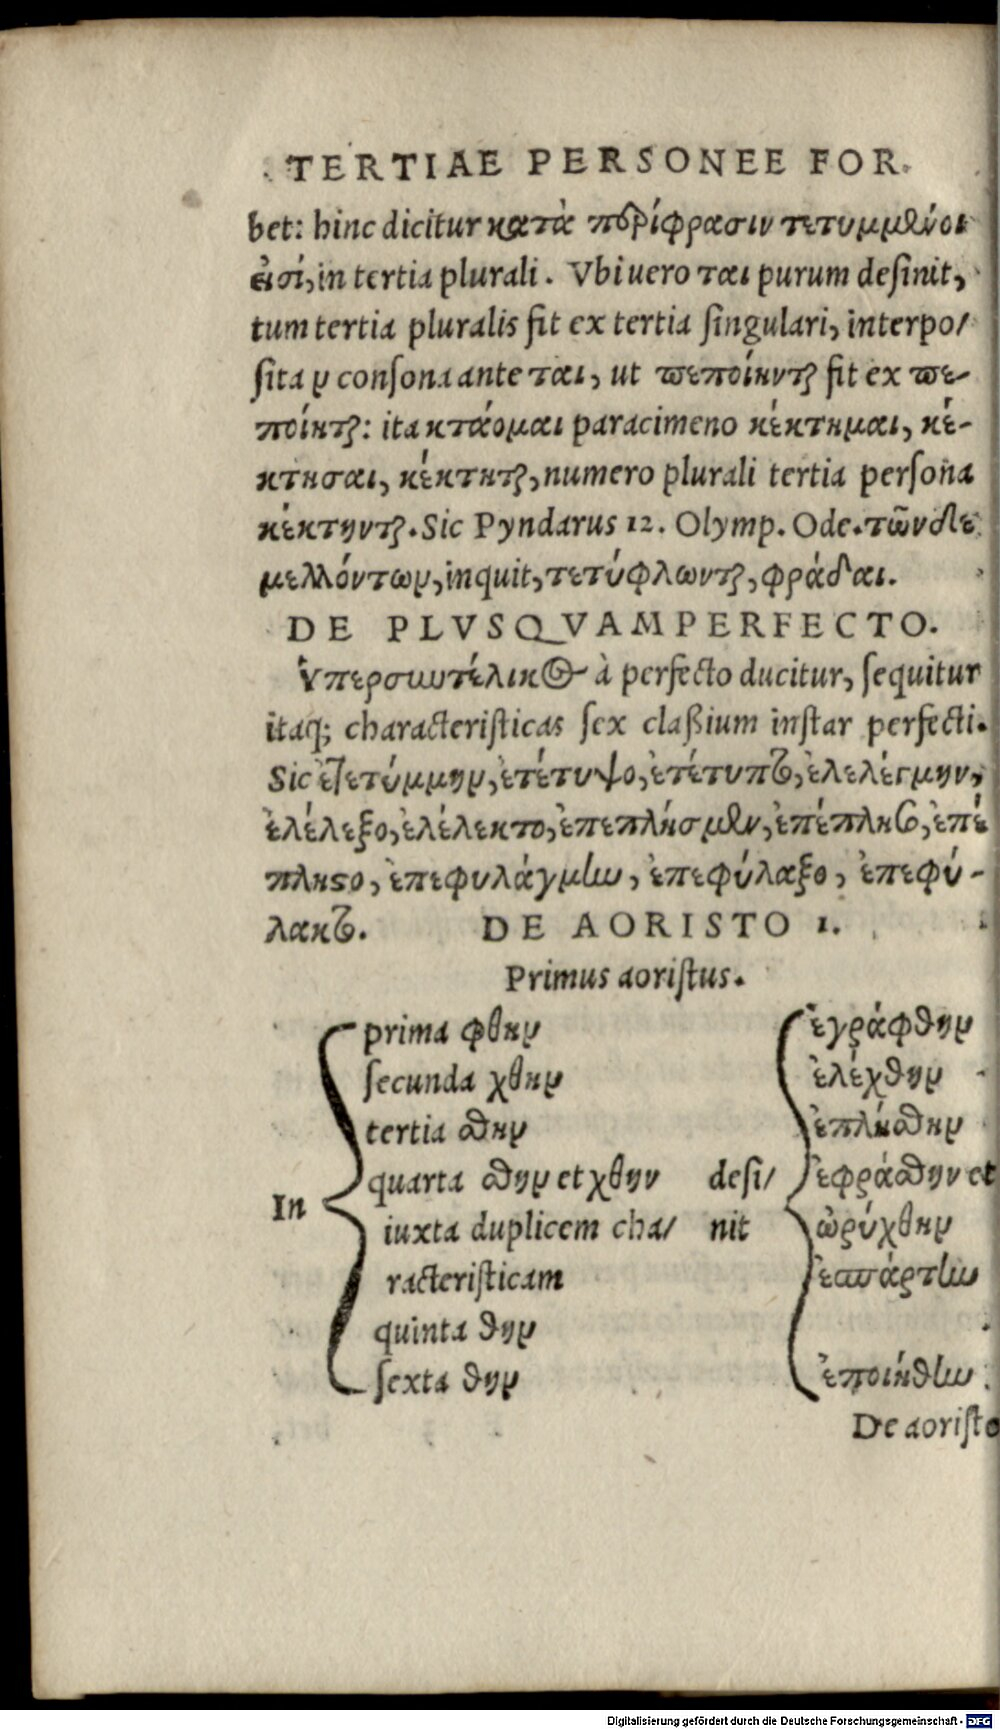 TERTIAE PERSONEE FOR.
bet: hinc dicitur κατὰ περίφρασιν τετυμμένοι
εἰσί, in tertia plurali. Vbi uero ται purum desinit,
tum tertia pluralis fit ex tertia singulari, interpo/
sita ν consona ante ται, ut πεποίηνται fit ex πε-
ποίηται: ita κτάομαι paracimeno κέκτημαι, κέ-
κτησαι, κέκτηται, numero plurali tertia persona
κέκτηνται. Sic Pyndarus 12. Olymp. Ode. τῶν δὲ
μελλόντων, inquit, τετύφλωνται, φράδαι.
DE PLVSQVAMPERFECTO.
ὑπερσυντέλικος à perfecto ducitur, sequitur
itaq; characteristicas sex claßium instar perfecti.
Sic ἐτετύμμην, ἐτέτυψο, ἐτέτυπτο, ἐλελέγμην,
ἐλέλεξο, ἐλέλεκτο, ἐπεπλήσμην, ἐπέπλησο, ἐπέ
πληστο, ἐπεφυλάγμην, ἐπεφύλαξο, ἐπεφύ-
λακτο. DE AORISTO 1.
Primus aoristus.
In
prima φθην
secunda χθην
tertia σθην
quarta σθην et χθην
iuxta duplicem cha/
racteristicam
quinta θην
sexta θην
desi/
nit
ἐγράφθην
ἐλέχθην
ἐπλήσθην
ἐφράσθην et
ὠρύχθην
ἐσπάρθην
ἐποιήθην
De aoristo
Digitalisierung gefördert durch die Deutsche Forschungsgemeinschaft - DFG